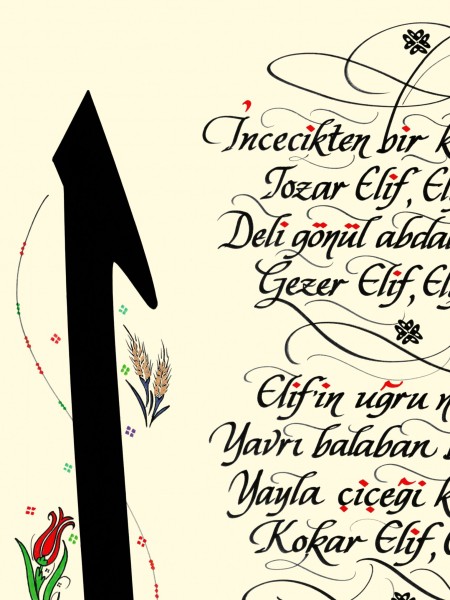 İncecikten bir k
Tozar Elif, El
Deli gönül abdal
Gezer Elif, El
Elif'in uğru n
Yavrı balaban
Yayla çiçeği k
Kokar Elif,